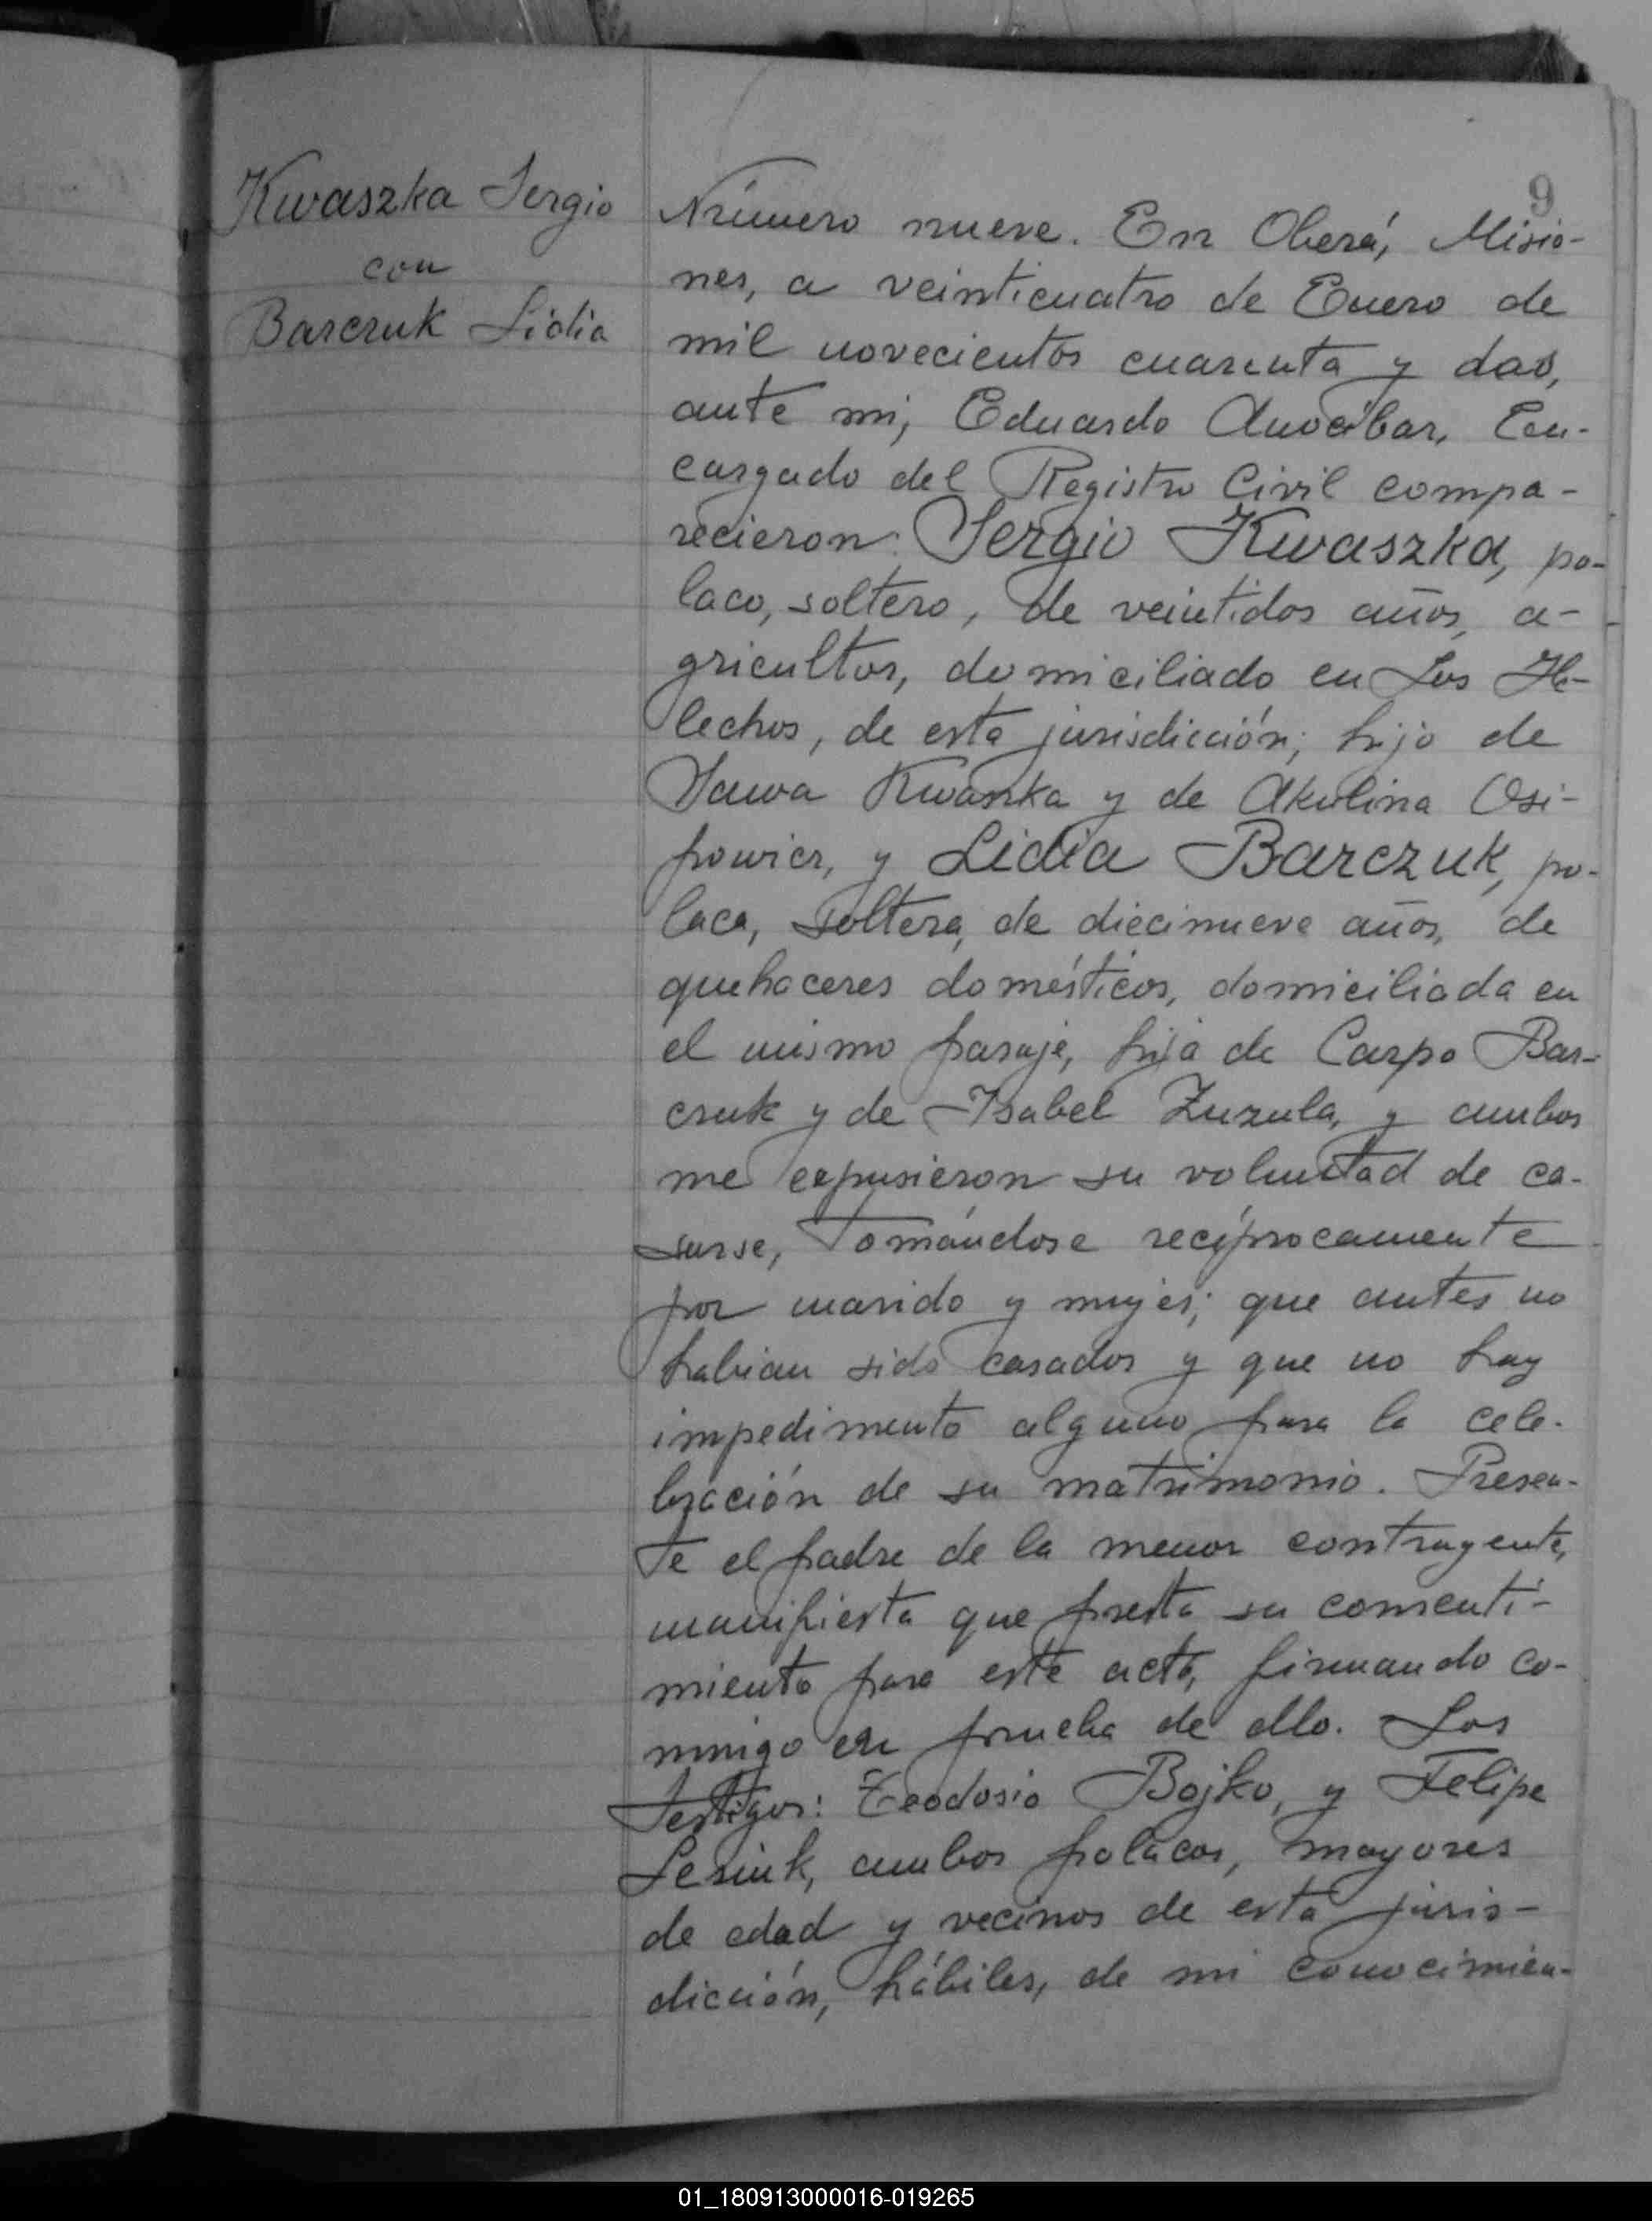 Kwaszka Sergio
con
Barczuk Lidia
9
Número nueve. En Oberá, Misio-
nes, a veinticuatro de Enero de
mil novecientos cuarenta y dos,
ante mi, Eduardo Ancibar, En-
cargado del Registro Civil compa-
recieron: Sergio Kwaszka, po-
laco, soltero, de veintidos años, a-
gricultor, domiciliado en Los He-
lechos, de esta jurisdicción; hijo de
Sawa Kwaszka y de Akulina Osi-
powicz, y Lidia Barczuk, po-
laca, soltera, de diecinueve años, de
quehaceres domésticos, domiciliada en
el mismo paraje, hija de Carpo Bar-
czuk y de Isabel Zuzula, y ambos
me expusieron su voluntad de ca-
sarse, tomándose recíprocamente
por marido y mujer; que antes no
habian sido casados y que no hay
impedimento alguno para la cele-
bración de su matrimonio. Presen-
te el padre de la menor contrayente,
manifiesta que presta su consenti-
miento para este acto, firmando co-
nmigo en prueba de ello. Los
Testigos: Teodosio Bojko, y Felipe
Lesiuk, ambos polacos, mayores
de edad y vecinos de esta juris-
dicción, hábiles, de mi conocimien-
01_180913000016-019265